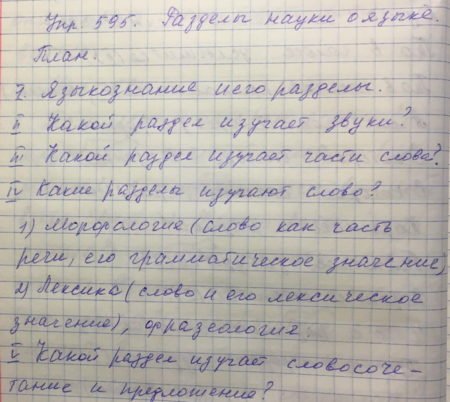 Упр. 595. Разделы науки о языке.
План.
I. Языкознание и его разделы.
II Какой раздел изучает звуки?
III Какой раздел изучает части слова?
IV Какие разделы изучают слово?
1) Морфология (слово как часть
речи, его грамматическое значение)
2) Лексика (слово и его лексическое
значение), фразеология.
V Какой раздел изучает словосоче-
тание и предложение?